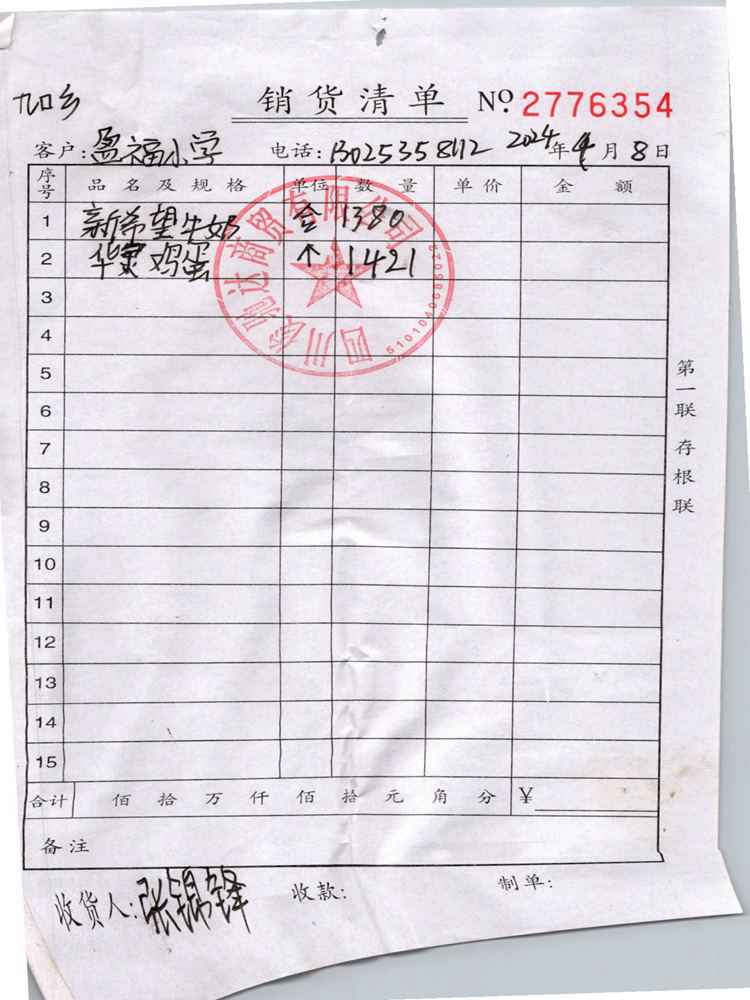 销货清单 № 2776354
九口乡
客户:盈福小学 电话:13025358112 2024年4月8日
序号 品名及规格 单位 数量 单价 金额
1 新希望牛奶 合 1380
2 华 鸡蛋 个 1421
3
4
5
6
7
8
9
10
11
12
13
14
15
合计 佰拾万仟佰拾元角分 ¥
备注
收货人:张锡锋 收款: 制单:
第一联 存根联
四川 驰达商贸有限公司